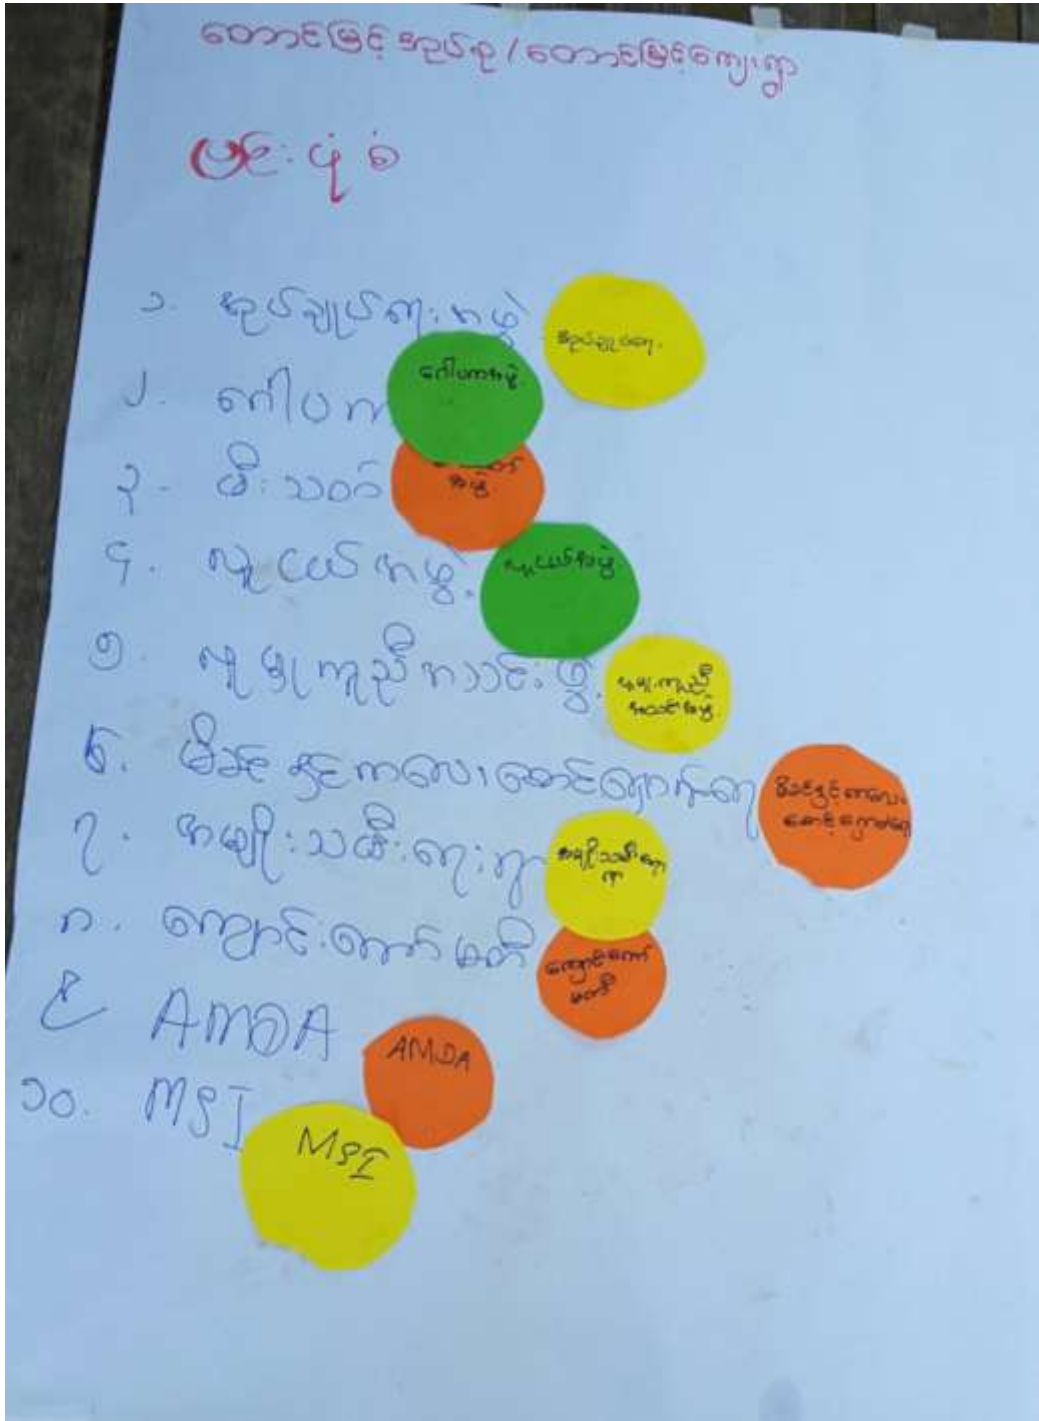 တောင်မြင့် အုပ်စု / တောင်မြင့်ကျေးရွာ
ပင်းပုံစံ
၁. အုပ်ချုပ်ရေးအဖွဲ့
အုပ်ချုပ်ရေး
၂. ဂေါပက
ဂေါပကအဖွဲ့
၃. မီးသတ်
အဖွဲ့
၄. လူငယ်အဖွဲ့
လူငယ်အဖွဲ့
၅. လူမှုကူညီအသင်းဖွဲ့
လူမှုကူညီ
အသင်းအဖွဲ့
၆. မိခင်နှင့်ကလေးစောင့်ရှောက်ရေး
မိခင်နှင့်ကလေး
စောင့်ရှောက်ရေး
၇. အမျိုးသမီးရေးရာ
အမျိုးသမီးရေး
ရာ
၈. ကျောင်းကော်မတီ
ကျောင်းကော်
မတီ
၉ AMDA
AMDA
၁၀. MSI
MSI